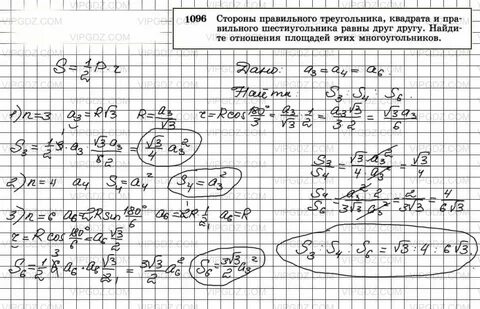 1096 Стороны правильного треугольника, квадрата и пра-
вильного шестиугольника равны друг другу. Найди-
те отношения площадей этих многоугольников.
S = 1/2 P · r
Дано: a₃ = a₄ = a₆
Найти: S₃ : S₄ : S₆
1) n=3 a₃ = R√3 R = a₃/√3 r = R cos 180°/3 = a₃/√3 · 1/2 = a₃√3/(3·2) = √3a₃/6
S₃ = 1/2 · 3 · a₃ · √3a₃/6 = √3/4 a₃²
2) n=4 a₄ S₄ = a₄² S₄ = a₃²
3) n=6 a₆ = 2R sin 180°/6 a₆ = 2R 1/2, a₆ = R
r = R cos 180°/6 = a₆ √3/2
S₆ = 1/2 · 6 · a₆ · a₆ √3/2 = 3√3/2 a₆² S₆ = 3√3/2 a₃²
S₃/S₄ = √3 a₃²/4 a₃² = √3/4
S₄/S₆ = a₃² · 2/3√3 a₃² = 2/3√3 = 4/6√3
S₃ : S₄ : S₆ = √3 : 4 : 6√3.
VIPGDZ.COM